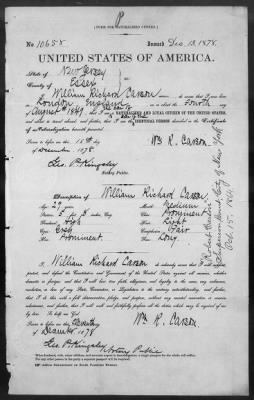 P
[FORM FOR NATURALIZED CITIZEN.]
No. 10658 Issued Dec. 13, 1878.
UNITED STATES OF AMERICA.
State of New Jersey
County of Essex
I, William Richard Carson do swear that I was born
in London, England on or about the Fourth day
of August 1849; that I am a NATURALIZED AND LOYAL CITIZEN OF THE UNITED STATES,
and about to travel abroad; and further, that I am the IDENTICAL PERSON described in the Certificate
of Naturalization herewith presented.
Wm R. Carson
Sworn to before me, this 11th day
of December 1878
Geo. P. Kingsley
Notary Public.
Description of William Richard Carson
Age: 29 years Mouth: Medium
Stature: 5 feet inches, Eng. Chin: Prominent
Forehead: High Hair: Light
Eyes: Grey Complexion: Fair
Nose: Prominent Face: Long
I, William Richard Carson do solemnly swear that I will support,
protect, and defend the Constitution and Government of the United States against all enemies, whether
domestic or foreign; and that I will bear true faith, allegiance, and loyalty to the same, any ordinance,
resolution, or law of any State, Convention, or Legislature to the contrary notwithstanding; and further,
that I do this with a full determination, pledge, and purpose, without any mental reservation or evasion
whatsoever; and further, that I will well and faithfully perform all the duties which may be required of me
by law. So help me God.
Wm R. Carson
Sworn to before me, this Eleventh day
of December 1878
Geo. P. Kingsley
Notary Public
Superior Court, City of New York
Oct. 15. 1868